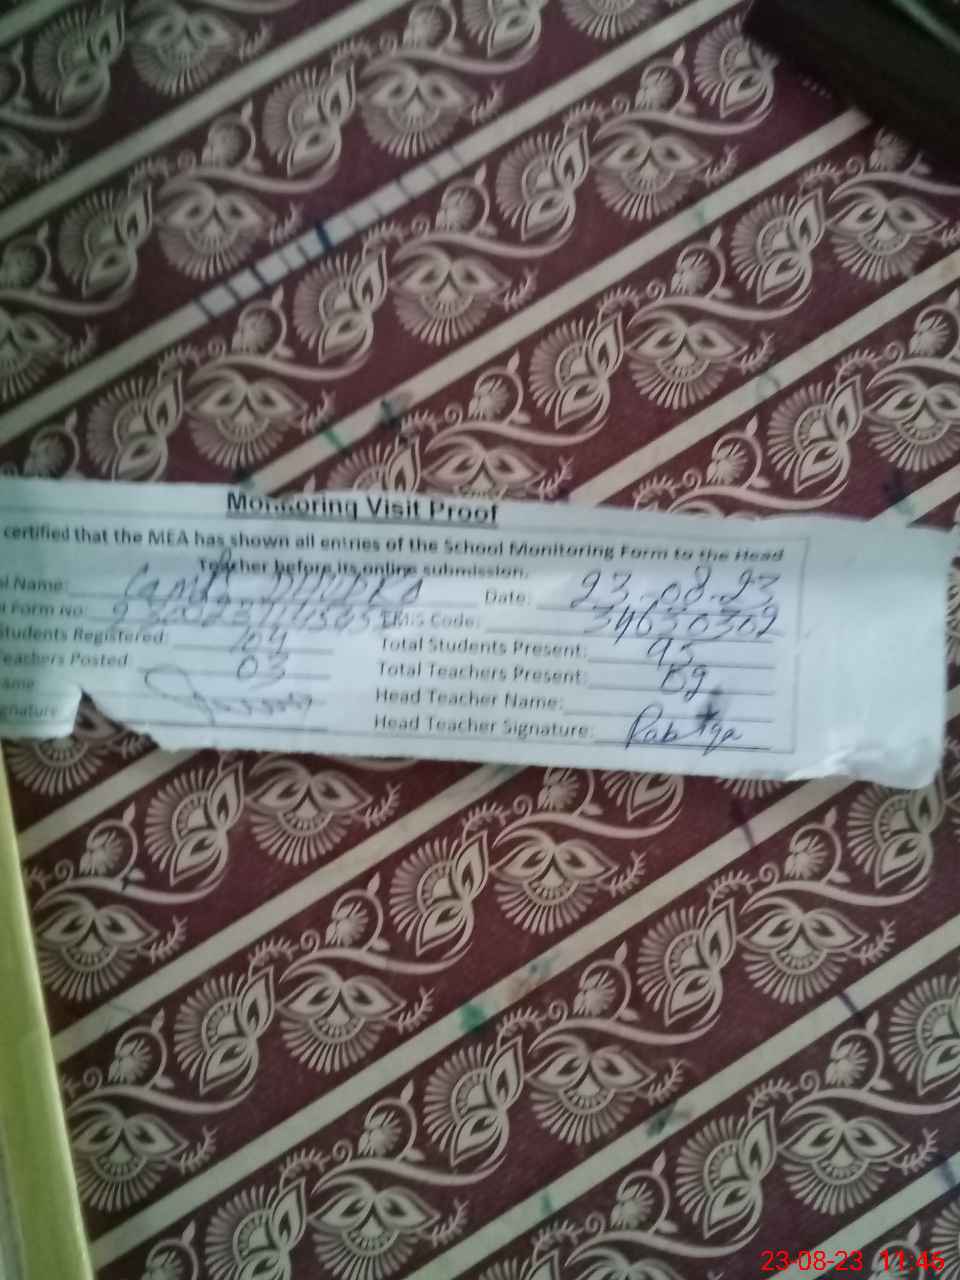 Monitoring Visit Proof
certified that the MEA has shown all entries of the School Monitoring Form to the Head
Teacher before its online submission.
l Name: Date: 23-08-23
Form No: EMIS Code: 34630302
Students Registered: 104 Total Students Present: 95
eachers Posted 03 Total Teachers Present:
ame Head Teacher Name:
gnature Head Teacher Signature: Rabiqa
23-08-23 11:45